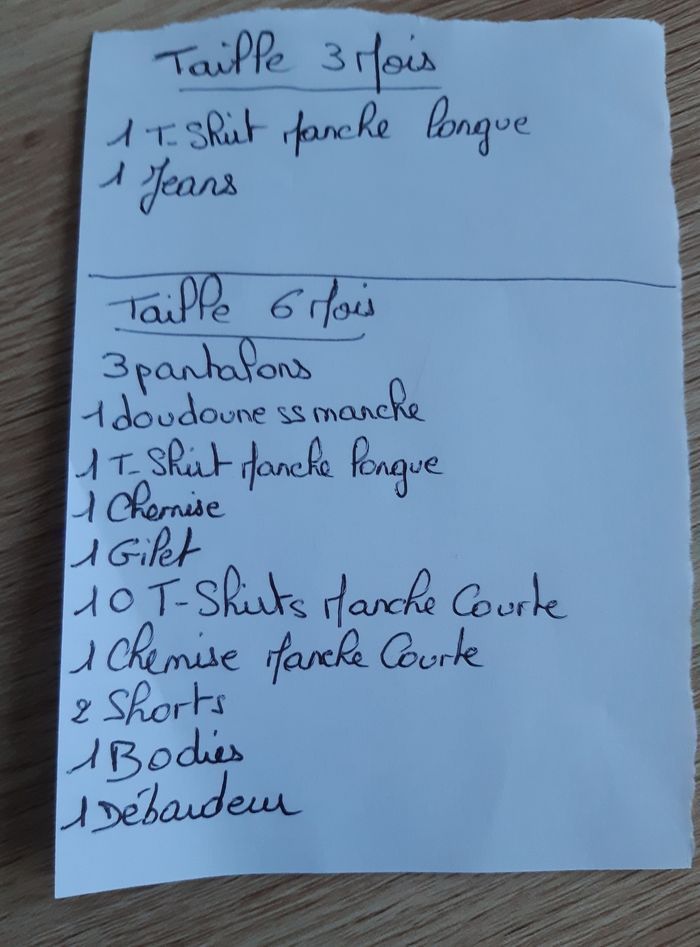 Taille 3 Mois
1 T-Shirt Manche longue
1 Jeans
Taille 6 Mois
3 pantalons
1 doudoune ss manche
1 T-Shirt Manche longue
1 Chemise
1 Gilet
10 T-Shirts Manche Courte
1 Chemise Manche Courte
2 Shorts
1 Bodies
1 Débardeur